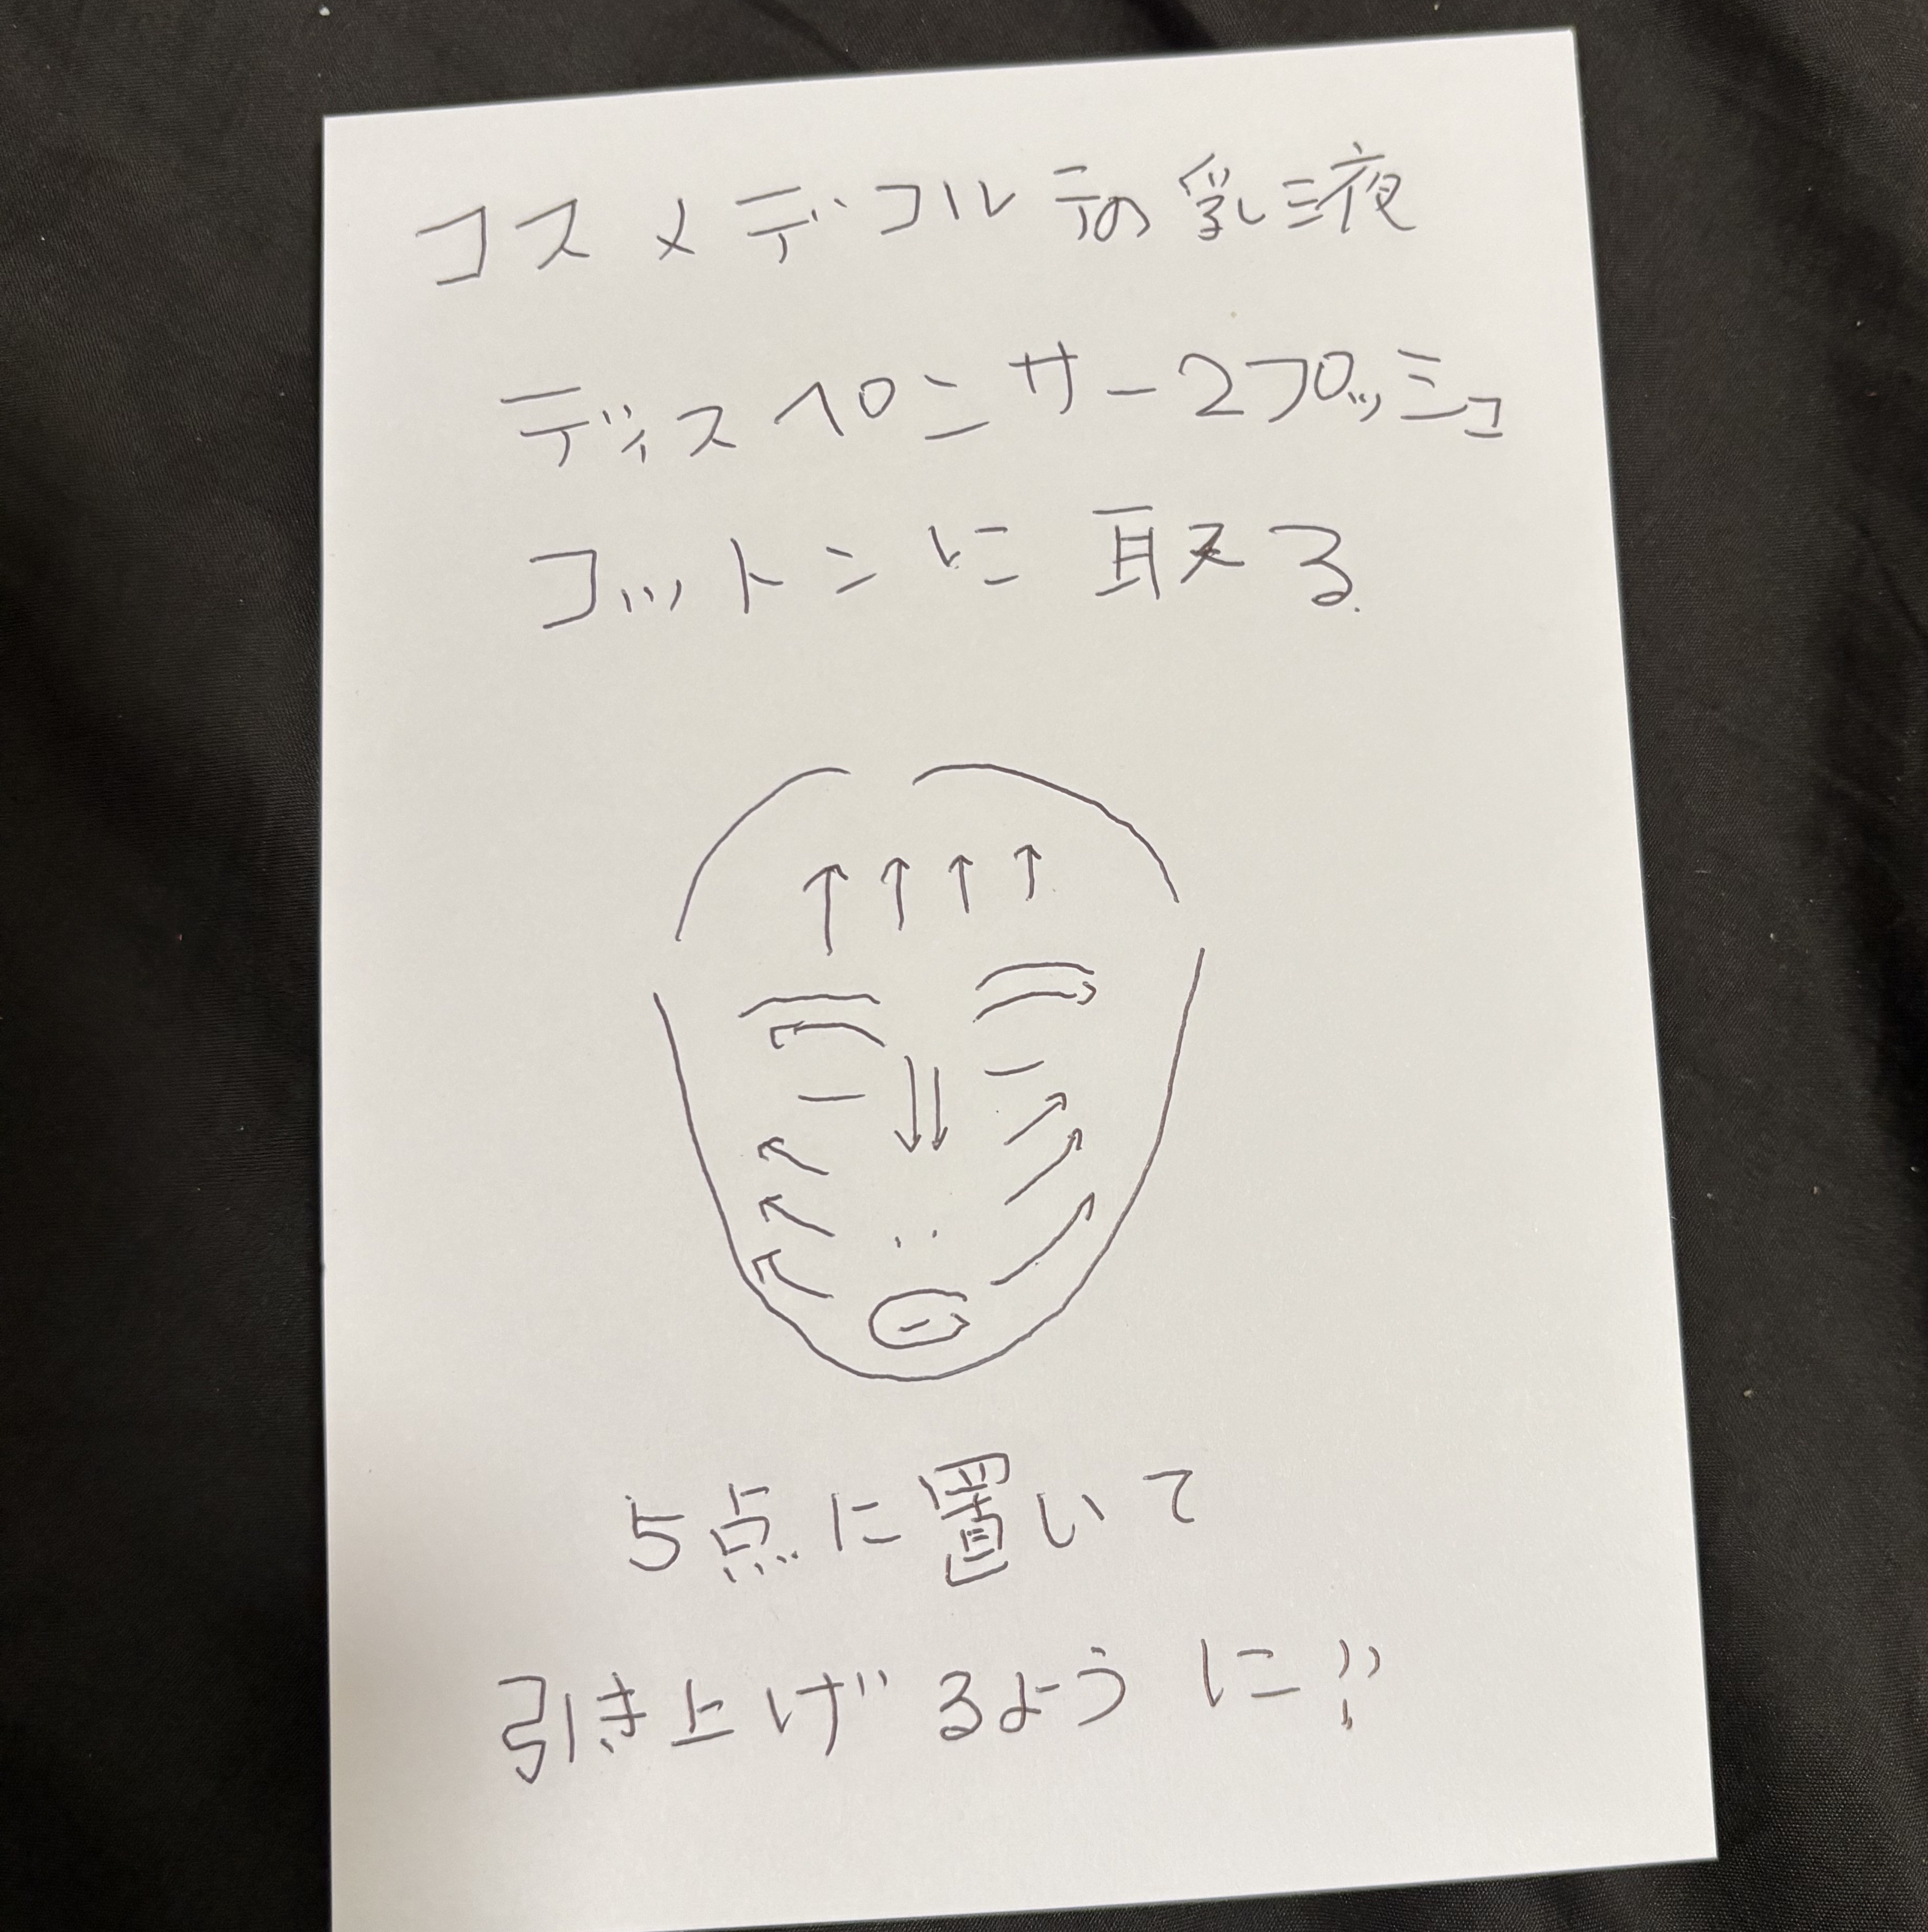 コスメデコルテの乳液
ディスペンサー2プッシュ
コットンに取える
5点に置いて
引き上げるように!!